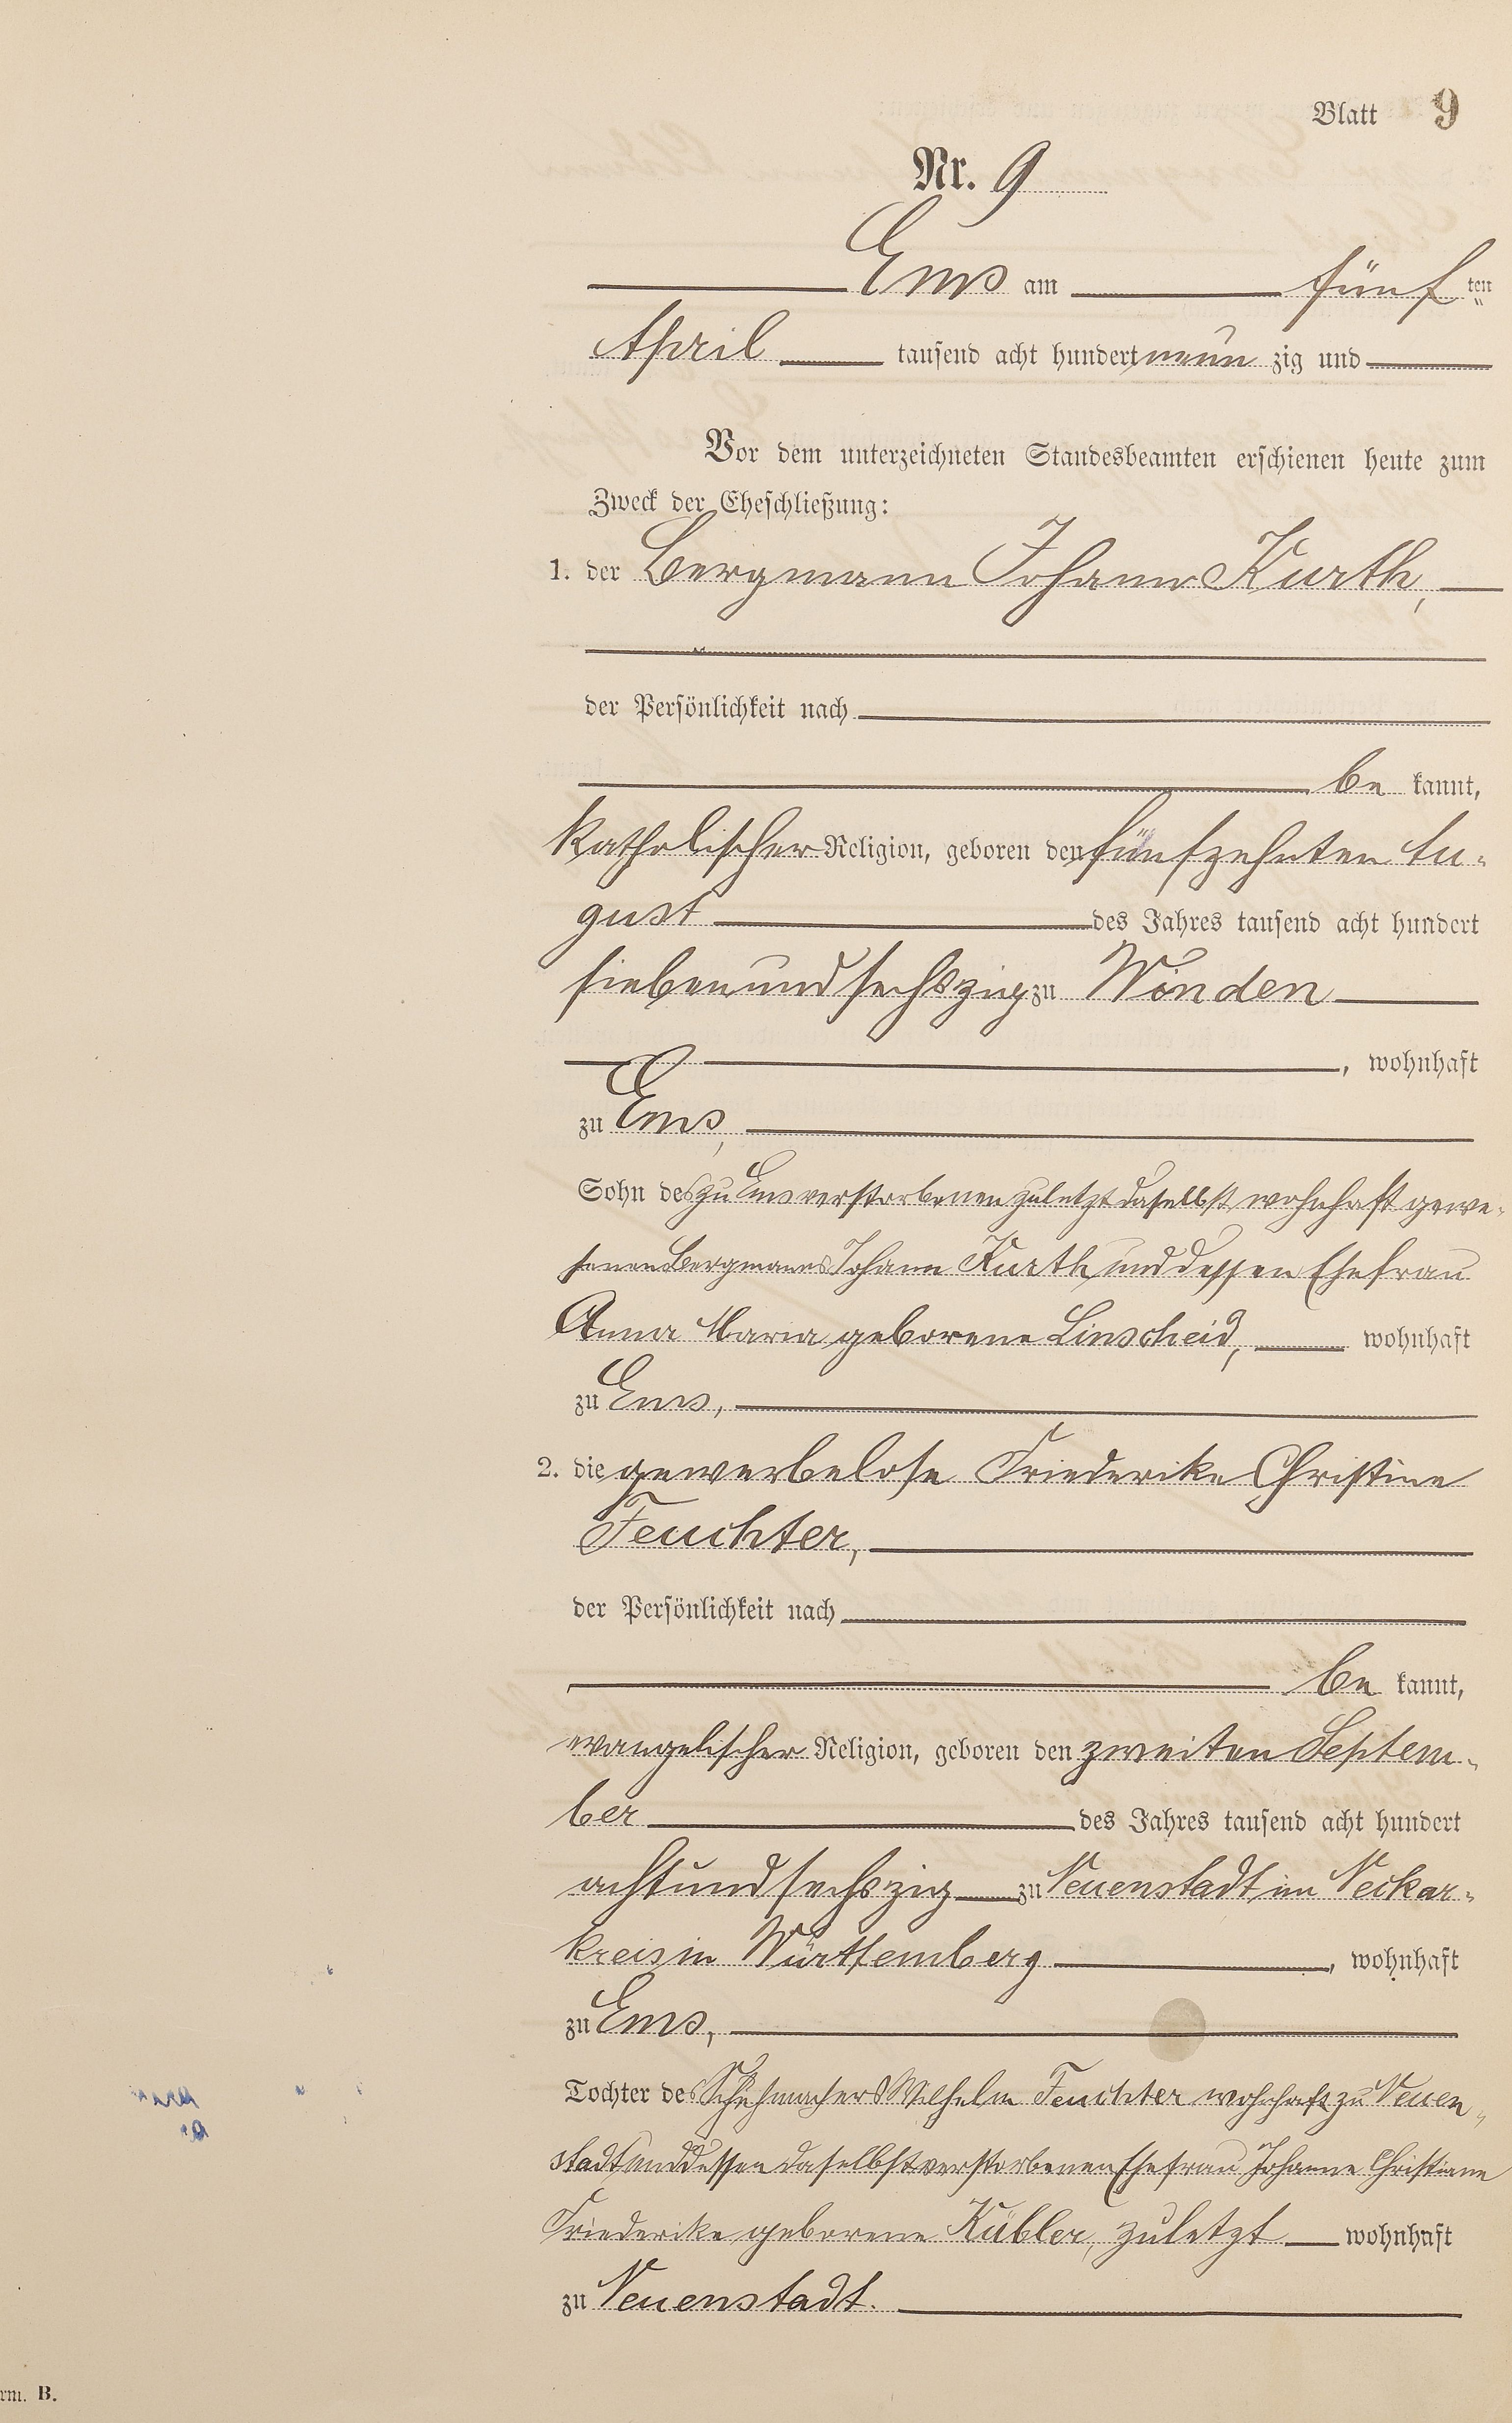 Blatt 9
Nr. 9
Ems am fünf ten
April tausend acht hundert neun zig und
Vor dem unterzeichneten Standesbeamten erschienen heute zum
Zweck der Eheschließung:
1. der Bergmann Johann Kurth,
der Persönlichkeit nach
be kannt,
katholischer Religion, geboren den fünfzehnten Au-
gust des Jahres tausend acht hundert
siebenundsechszig zu Winden
, wohnhaft
zu Ems,
Sohn des zu Ems verstorbenen zuletzt daselbst wohnhaft gewe-
senen Bergmanns Johann Kurth und dessen Ehefrau
Anna Maria geborene Linscheid, wohnhaft
zu Ems,
2. die gewerbelose Friederike Christine
Feuchter,
der Persönlichkeit nach
be kannt,
evangelischer Religion, geboren den zweiten Septem-
ber des Jahres tausend acht hundert
achtundsechszig zu Neuenstadt im Neckar-
kreis in Württemberg , wohnhaft
zu Ems,
Tochter des Schuhmachers Wilhelm Feuchter wohnhaft zu Neuen-
stadt und dessen daselbst verstorbenen Ehefrau Johanne Christiane
Friederike geborene Kübler, zuletzt wohnhaft
zu Neuenstadt.
rm. B.